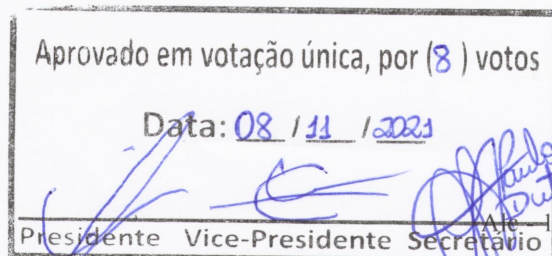 Aprovado em votação única, por (8) votos
Data: 08 / 11 / 2021
Presidente Vice-Presidente Secretário